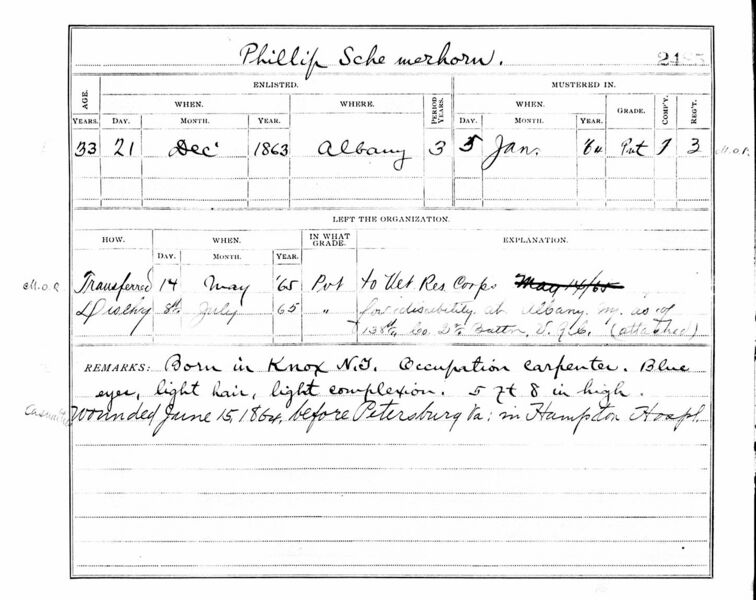 Phillip Schemerhorn.
ENLISTED. MUSTERED IN.
AGE. WHEN. WHERE. PERIOD YEARS. WHEN. GRADE. COMP'Y. REG'T.
YEARS. DAY. MONTH. YEAR. DAY. MONTH. YEAR.
33 21 Dec 1863 Albany 3 5 Jan. '64 Pvt 3 M.O.R.
LEFT THE ORGANIZATION.
HOW. WHEN. IN WHAT GRADE. EXPLANATION.
DAY. MONTH. YEAR.
M.O.R. Transferred 14 May '65 Pvt to Vet Res Corps May 14/65
Dischg 8th July 65 " for disability at Albany
Co. 2d Battn. V.R.C. (attached)
REMARKS: Born in Knox N.Y. Occupation carpenter. Blue
eyes, light hair, light complexion. 5 ft 8 in high.
Wounded June 15, 1864, before Petersburg Va; in Hampton Hospl.